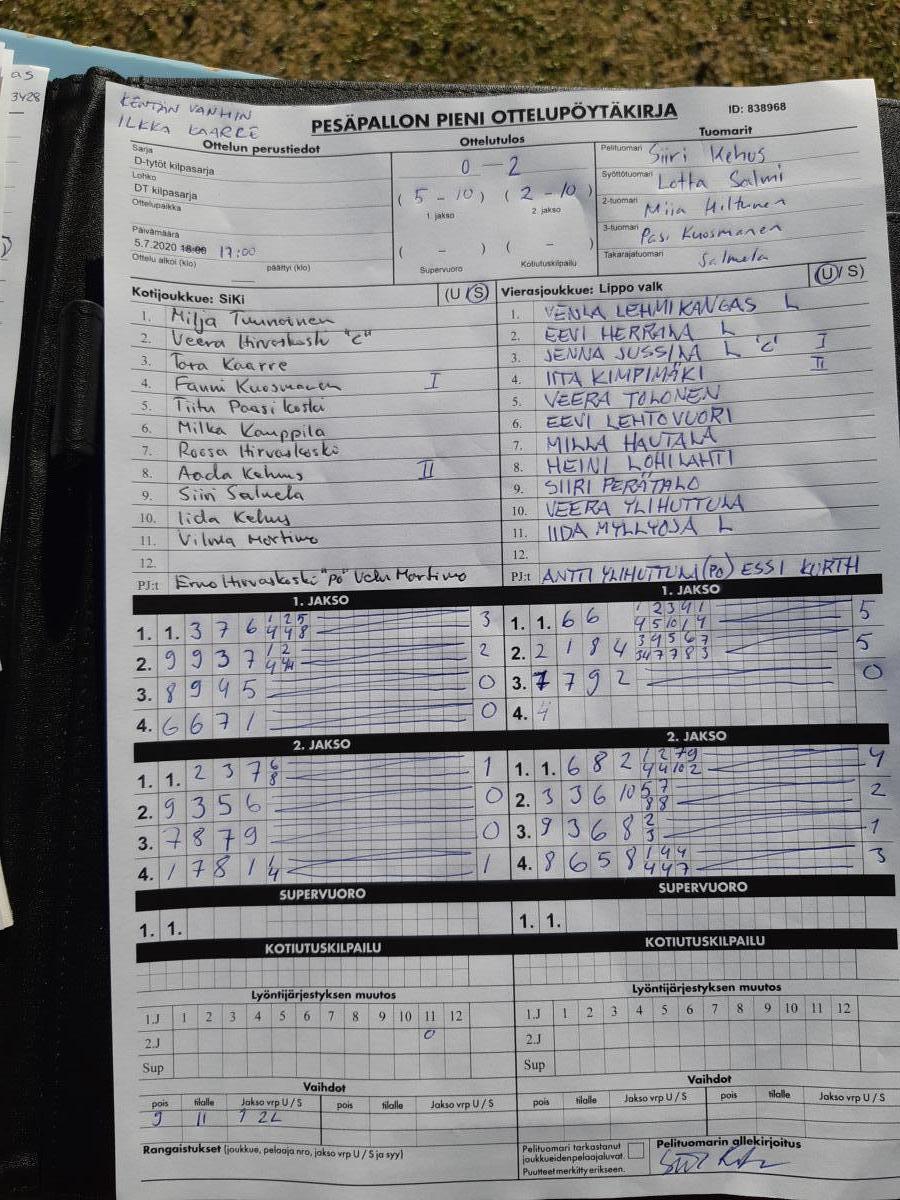 as
3428
KENTÄN VANHIN
ILKKA KAARRE
PESÄPALLON PIENI OTTELUPÖYTÄKIRJA
ID: 838968
Ottelun perustiedot
Sarja
D-tytöt kilpasarja
Lohko
DT kilpasarja
Ottelupaikka
Päivämäärä
5.7.2020 18:00 17:00
Ottelu alkoi (klo) päättyi (klo)
Ottelutulos
0 - 2
( 5 - 10 ) ( 2 - 10 )
1. jakso 2. jakso
( - ) ( - )
Supervuoro Kotiutuskilpailu
Tuomarit
Pelituomari Siiri Kehus
Syöttötuomari Lotta Salmi
2-tuomari Miia Hiltunen
3-tuomari Pasi Kuosmanen
Takarajatuomari Salmela
Kotijoukkue: SiKi (U / S)
1. Milja Tuunainen
2. Veera Hirvaskoski "C"
3. Tora Kaarre
4. Fanni Kuosmanen I
5. Tiitu Paasikoski
6. Milka Kauppila
7. Roosa Hirvaskoski
8. Aada Kehus II
9. Siiri Salmela
10. Iida Kehus
11. Vilma Mortimo
12.
PJ:t Erno Hirvaskoski "PO" Velu Mortimo
Vierasjoukkue: Lippo valk (U / S)
1. VENLA LEHMIKANGAS L
2. EEVI HERRALA L
3. JENNA JUSSILA L "C" I
4. IITA KIMPIMÄKI II
5. VEERA TOLONEN
6. EEVI LEHTOVUORI
7. MILLA HAUTALA
8. HEINI LOHILAHTI
9. SIIRI PERÄTALO
10. VEERA YLIHUTTULA
11. IIDA MYLLYOJA L
12.
PJ:t ANTTI YLIHUTTULA (PO) ESSI KURTH
1. JAKSO
1. 1. 3 7 6 1 2 5 3
4 4 8
2. 9 9 3 7 1 2 2
4 4
3. 8 9 4 5 0
4. 6 6 7 1 0
1. JAKSO
1. 1. 6 6 1 2 3 9 1 5
4 5 10 1 4
2. 2 1 8 4 3 4 5 6 7 5
3 4 7 7 8 3
3. 7 7 9 2 0
4. 4
2. JAKSO
1. 1. 2 3 7 6 1
8
2. 9 3 5 6 0
3. 7 8 7 9 0
4. 1 7 8 1 1 1
4
2. JAKSO
1. 1. 6 8 2 1 2 7 9 4
4 4 10 2
2. 3 3 6 10 5 7 2
8 8
3. 9 3 6 8 2 1
3
4. 8 6 5 8 1 4 4 3
4 4 7
SUPERVUORO
1. 1.
SUPERVUORO
1. 1.
KOTIUTUSKILPAILU
KOTIUTUSKILPAILU
Lyöntijärjestyksen muutos
1.J 1 2 3 4 5 6 7 8 9 10 11 12
2.J 0
Sup
Lyöntijärjestyksen muutos
1.J 1 2 3 4 5 6 7 8 9 10 11 12
2.J
Sup
Vaihdot
pois tilalle Jakso vrp U / S pois tilalle Jakso vrp U / S
9 11 1 2L
Vaihdot
pois tilalle Jakso vrp U / S pois tilalle Jakso vrp U / S
Rangaistukset (joukkue, pelaaja nro, jakso vrp U / S ja syy)
Pelituomari tarkastanut
joukkueiden pelaajaluvat.
Puutteet merkitty erikseen.
Pelituomarin allekirjoitus